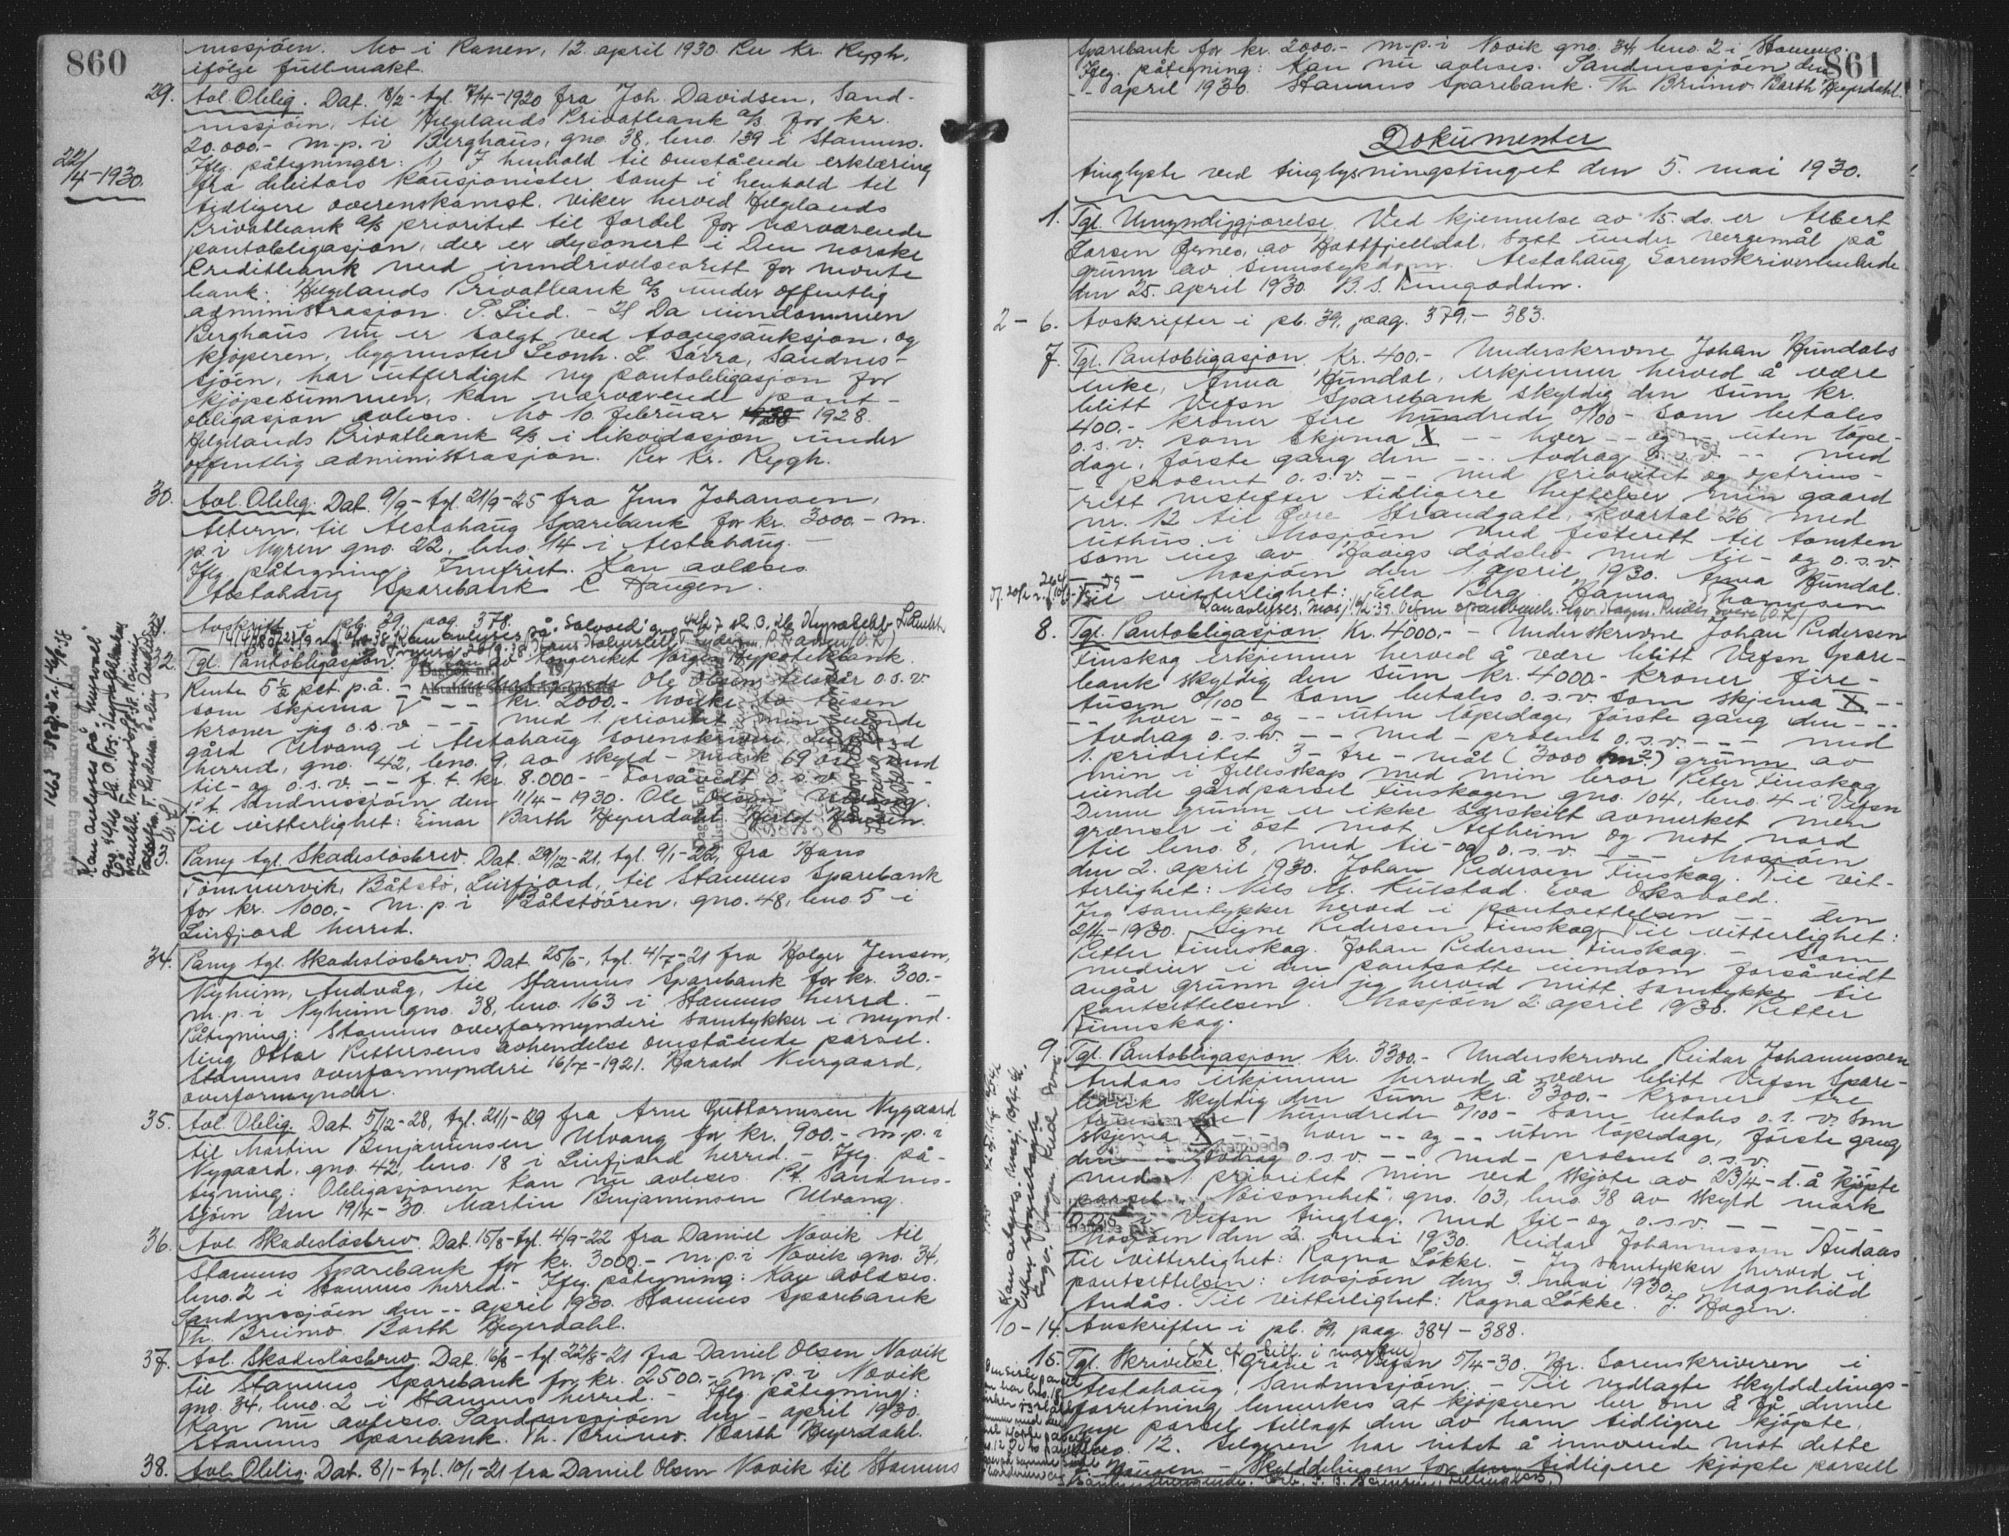 860
nessjöen. Mo i Ranen, 12. april 1930 Rer Kr. Rygh,
ifölge fullmakt.
29. Avl. Oblig. Dat. 8/2- tgl. 7/4-1920 fra Joh. Davidsen, Sand-
nessjöen, til Helgelands Privatbank a/s for kr.
20.000.- m.p. i Berghaus, gno. 38, bno. 139 i Stamnes.
Iflg. påtegninger: I henhold til omstående erklæring
22/4-1930.
fra debitors kausjonister samt i henhold til
tidligere overenskomst viker herved Helgelands
Privatbank a/s prioritet til fordel for nærværende
pantobligasjon, der er deponert i Den norske
Creditbank med inndrivelsesrett for nevnte
bank. Helgelands Privatbank a/s under offentlig
administrasjon. S. Lied. - Da eiendommen
Berghaus nu er solgt ved tvangsauksjon, og
kjöperen, byggmester Leonh. L. Sörra, Sandnes-
sjöen, har utferdiget ny pantobligasjon for
kjöpesummen, kan nærværende pant-
obligasjon avleses. Mo 10. februar 1928.
Helgelands Privatbank a/s i likvidasjon under
offentlig administrasjon. Rer Kr. Rygh.
30. Avl. Oblig. Dat. 9/9- tgl. 21/9-25 fra Jens Johansen,
Altern, til Alstahaug Sparebank for kr. 3000.- m.
p. i Myren gno. 22, bno. 14 i Alstahaug. -
Iflg. påtegning: Innfriet. Kan avleses.
Alstahaug Sparebank C Haugen.
Avskrift i pb. 39, pag. 378.
32. Tgl. Pantobligasjon for lån av Kongeriket Norges Hypotekbank.
Rente 5½ pct. p.å. - Undertegnede Ole Olsen tilstår o.s.v.
som skjema V - - kr. 2000.- hvilke to tusen
kroner jeg o.s.v. - - - med 1. prioritet min eiende
gård Ulvang i Alstahaug sorenskriveri,
herred, gno. 42, bno. 9, av skyld - mark 69 öre med
til- og o.s.v. - - f. t. kr. 8.000.- - forsåvidt o.s.v. - -
P.t. Sandnessjöen den 11/4-1930. Ole Olsen Ulvang.
Til vitterlighet: Einar Barth Heyerdahl
Pany tgl. Skadeslösbrev. Dat. 29/12-21, tgl. 9/1-22, fra Hans
Tömmervik, Båtstö, Leirfjord, til Stamnes Sparebank
for kr. 1000.- m.p. i Båtstöören, gno. 48, bno. 5 i
Leirfjord herred.
34. Pany tgl. Skadeslösbrev. Dat. 25/6-, tgl. 4/7-21 fra Holger Jensen,
Nyheim, Andvåg, til Stamnes Sparebank for kr. 300.-
m.p. i Nyheim gno. 38, bno. 163 i Stamnes herred. -
Påtegning: Stamnes overformynderi samtykker i mynd-
ling Ottar Pettersens avhendelse omstående parsel.
Stamnes overformynderi 16/7-1921. Harald Nergaard,
overformynder.
35. Avl. Oblig. Dat. 5/12-28, tgl. 21/1-29 fra Arne Guttormsen Nygaard
til Martin Benjaminsen Ulvang for kr. 900.- m.p. i
Nygaard, gno. 42, bno. 18 i Leirfjord herred. - Iflg. på-
tegning: Obligasjonen kan nu avleses. P.t. Sandnes-
sjöen den 19/4-30. Martin Benjaminsen Ulvang.
36. Avl. Skadeslösbrev. Dat. 15/8- tgl. 4/9-22 fra Daniel Novik til
Stamnes Sparebank for kr. 3000.- m.p. i Novik gno. 34,
bno. 2 i Stamnes herred. - Iflg. påtegning: Kan avleses.
Sandnessjöen den -- april 1930. Stamnes Sparebank
Th. Bruno. Barth Heyerdahl.
37. Avl. Skadeslösbrev. Dat. 16/8- tgl. 22/8-21 fra Daniel Olsen Novik
til Stamnes Sparebank for kr. 2500.- m.p. i Novik
gno. 34, bno. 2 i Stamnes herred. - Iflg. påtegning:
Kan nu avleses. Sandnessjöen den - april 1930.
Stamnes Sparebank. Th. Bruno. Barth Heyerdahl.
38. Avl. Oblig. Dat. 8/1- tgl. 10/1-21 fra Daniel Olsen Novik til Stamnes
861
Sparebank for kr. 2000.- m.p. i Novik gno. 34 bno. 2 i Stamnes.
Iflg. påtegning: Kan nu avleses. Sandnessjöen den
- april 1930. Stamnes Sparebank. Th. Bruno. Barth Heyerdahl.
Dokumenter
tinglyste ved tinglysningstinget den 5. mai 1930.
1. Tgl. Umyndiggjörelse. Ved kjennelse av 15. ds. er Albert
Larsen Ternes, av Hattfjelldal, satt under vergemål på
grunn av sinnssykdom. Alstahaug Sorenskriverembede
den 25. april 1930.
2 - 6. Avskrifter i pb. 39, pag. 379.- 383.
7. Tgl. Pantobligasjon. Kr. 400.- Underskrevne Johan Hundals
enke, Anna Hundal, erkjenner herved å være
blitt Vefsn Sparebank skyldig den sum kr.
400.- kroner fire hundrede 0/100 - som betales
o.s.v. som skjema X - - hver - - og - - uten löpe-
dage, förste gang den - - - Avdrag o.s.v. - - med
- procent o.s.v. - - med prioritet og optrins-
rett nestefter tidligere heftelser min gaard
nr. 12 til Övre Strandgate, kvartal 26 med
uthus i Mosjöen med festerett til tomten
som eies av Havigs dödsbo med til- og o.s.v.
Mosjöen den 1. april 1930. Anna Hundal.
Til vitterlighet: Ella Berg. Hanna Johannesen
8. Tgl. Pantobligasjon. Kr. 4000.- - Underskrevne Johan Pedersen
Finskog erkjenner herved å være blitt Vefsn Spare-
bank skyldig den sum kr. 4000.- kroner fire-
tusen 0/100 - som betales o.s.v. som skjema X - -
- - hver - - og - - uten löpedage, förste gang den - - -
Avdrag o.s.v. - - med - procent o.s.v. - - - med
1. prioritet 3 - tre - mål (3000 m²) grunn av
min i fellesskap med min bror Peter Finskog
eiende gårdparsel Finskogen gno. 104, bno. 4 i Vefsn
Denne grunn er ikke særskilt avmerket men
grænser i öst mot Alfheim og mot nord
til bno. 8, med til- og o.s.v. - - - Mosjöen
den 2. april 1930. Johan Pedersen Finskog. Til vit-
terlighet: Nils M. Kulstad. Eva Oksvold.
Jeg samtykker herved i pantsettelsen - - den
2/4-1930. Signe Pedersen Finskog. Til vitterlighet:
Petter Finnskog. Johan Pedersen Finskog. - Som
medeier i den pantsatte eiendom forsåvidt
angår grunn gir jeg herved mitt samtykke til
pantsettelsen. Mosjöen 2. april 1930. Petter
Finnskog.
9. Tgl. Pantobligasjon. Kr. 3300.- Underskrevne Reidar Johannessen
Andaas erkjenner herved å være blitt Vefsn Spare-
bank skyldig den sum kr. 3300.- kroner tre
tusen tre hundrede 0/100 - som betales o.s.v. som
skjema X - - hver - - og - - uten löpedage, förste gang
den - - Avdrag o.s.v. - - med - procent o.s.v.
med 1. prioritet min ved skjöte av 23/4- d.å. kjöpte
parsel "Beisomhet", gno. 103, bno. 38 av skyld mark
0.05 i Vefsn tinglag. med til- og o.s.v. - - - - -
Mosjöen den 2. mai 1930. Reidar Johannessen Andaas
Til vitterlighet: Ragna Lökke. - Jeg samtykker herved i
pantsettelsen: Mosjöen den 3. mai 1930. Magnhild
Andås. Til vitterlighet: Ragna Lökke. J. Hagen.
10 - 14. Avskrifter i pb. 39, pag. 384 - 388.
15. Tgl. Skrivelse. Grane i Vefsn 5/4-30. Hr. Sorenskriveren i
Alstahaug, Sandnessjöen. - Til vedlagte skylddelings-
forretning bemerkes at kjöperen ber om å få denne
nye parsel tillagt den av ham tidligere kjöpte,
bno. 12. Selgeren har intet å innvende mot dette
- Skylddelingen for den tidligere kjöpte parsell